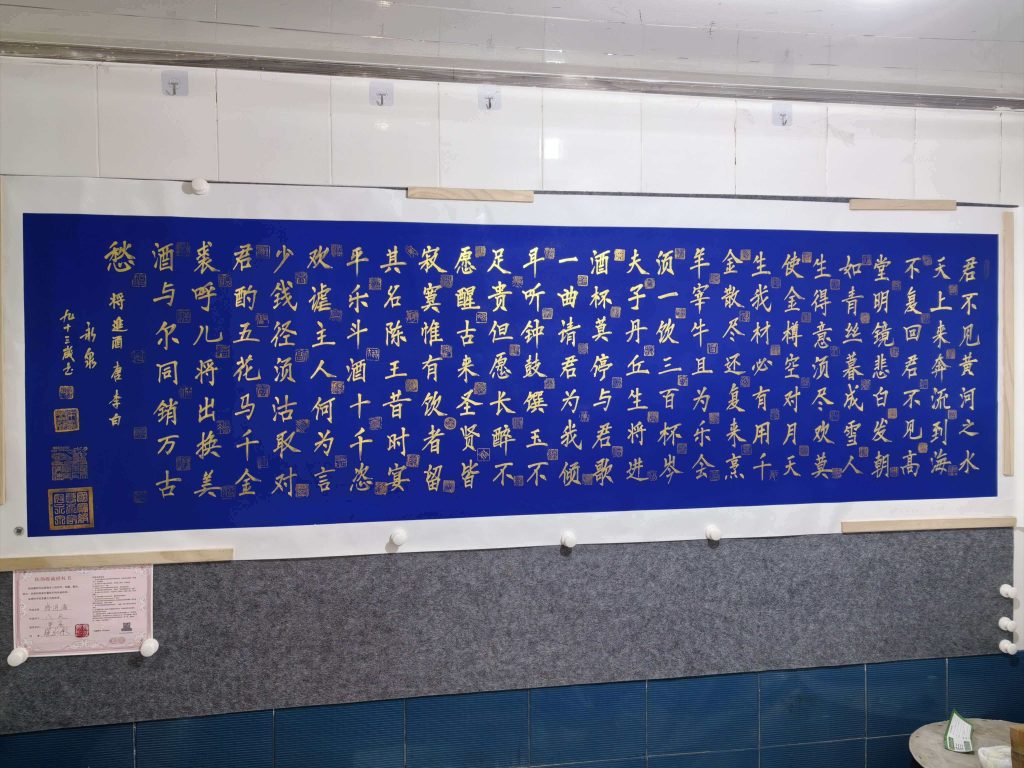 君不见黄河之水
天上来奔流到海
不复回君不见高
堂明镜悲白发朝
如青丝暮成雪人
生得意须尽欢莫
使金樽空对月天
生我材必有用千
金散尽还复来烹
羊宰牛且为乐会
须一饮三百杯岑
夫子丹丘生将进
酒杯莫停与君歌
一曲请君为我倾
耳听钟鼓馔玉不
足贵但愿长醉不
愿醒古来圣贤皆
寂寞惟有饮者留
其名陈王昔时宴
平乐斗酒十千恣
欢谑主人何为言
少钱径须沽取对
君酌五花马千金
裘呼儿将出换美
酒与尔同销万古
愁
将進酒 唐 李白
九十三岁书